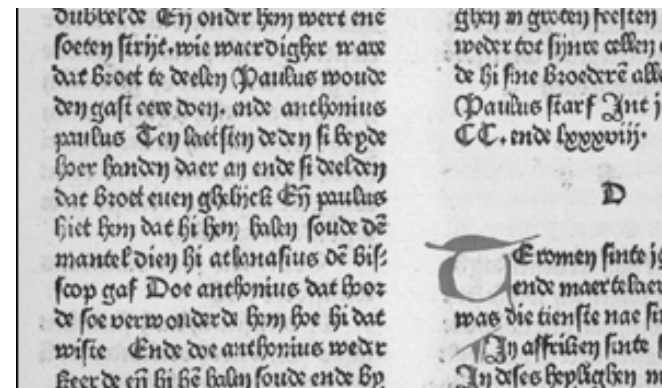 dubbelde Eñ onder hem wert ene
soeten strijt. wie waerdigher ware
dat broet te deelen Paulus woude
den gast eere doen. ende anthonius
paulus Ten laetsten deden si beyde
hoer handen daer an ende si deelden
dat broet euen ghelijck Eñ paulus
hiet hem dat hi hem halen soude dē
mantel dien hi athanasius dē bis⸗
scop gaf Doe anthonius dat hoor
de soe verwonderde hem hoe hi dat
wiste Ende doe anthonius weder
keerde eñ hi hē halen soude ende by
ghen in groten feesten
weder tot sijnre cellen
de hi sine broederē
Paulus starf Int
CC. ende lxxxviij.
D
Te romen sinte
ende
was die tienste nae
In affriken sinte
In deses heylighen